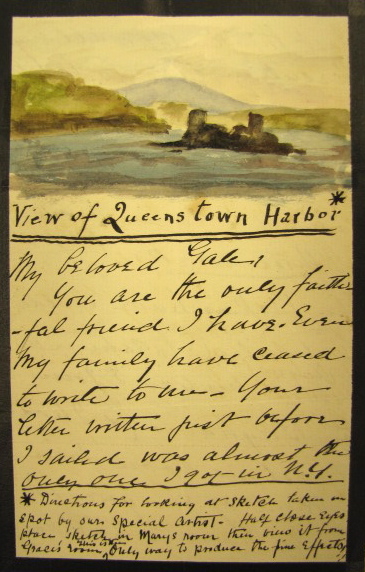 View of Queenstown Harbor *
My beloved Gale,
You are the only faith
-ful friend I have. Even
My family have ceased
to write to me - Your
letter written just before
I sailed was almost the
only one I got in N.Y.
* Directions for looking at Sketch taken on
Spot by our Special Artist - Half Close Eyes
place sketch in Mary's room then view it from
Grace's room, This is the only way to produce the fine effects